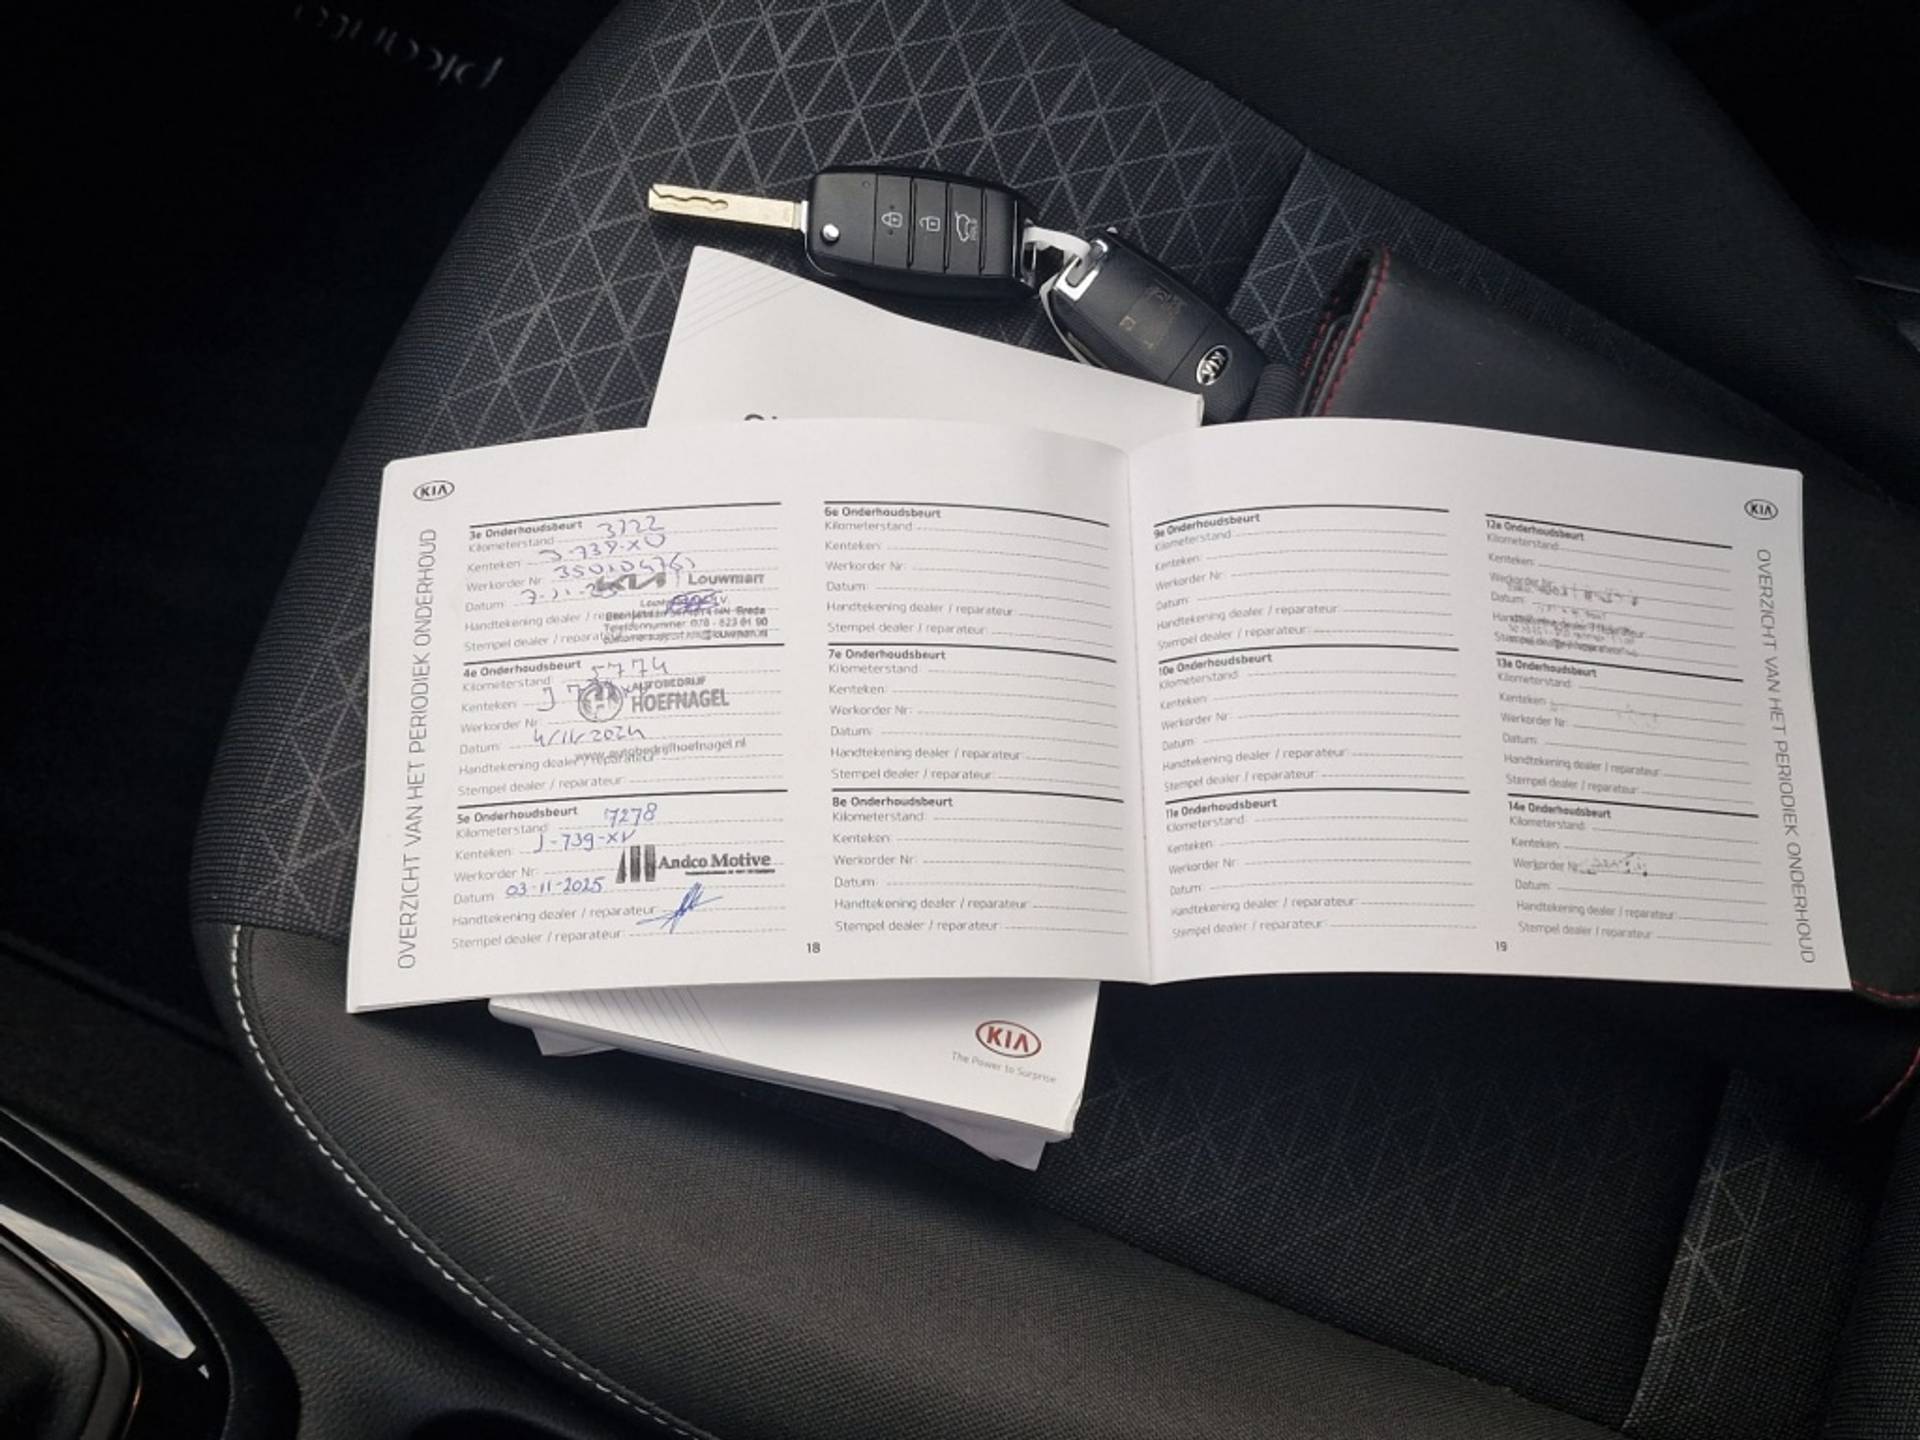 Picanto
KIA
KIA
OVERZICHT VAN HET PERIODIEK ONDERHOUD
3e Onderhoudsbeurt
Kilometerstand 3722
Kenteken: J-739-XV
Werkorder Nr:
Datum: 7-11-
KIA Louwman
Handtekening dealer /
Stempel dealer /
4e Onderhoudsbeurt
Kilometerstand 5774
Kenteken: J
AUTOBEDRIJF
HOEFNAGEL
Werkorder Nr:
Datum: 4/11/2024
www.autobedrijfhoefnagel.nl
Handtekening dealer / reparateur:
Stempel dealer / reparateur:
5e Onderhoudsbeurt
Kilometerstand: 7278
Kenteken: J-739-XV
Werkorder Nr:
Andco Motive
Datum: 03-11-2025
Handtekening dealer / reparateur:
Stempel dealer / reparateur:
6e Onderhoudsbeurt
Kilometerstand:
Kenteken:
Werkorder Nr:
Datum:
Handtekening dealer / reparateur:
Stempel dealer / reparateur:
7e Onderhoudsbeurt
Kilometerstand:
Kenteken:
Werkorder Nr:
Datum:
Handtekening dealer / reparateur:
Stempel dealer / reparateur:
8e Onderhoudsbeurt
Kilometerstand:
Kenteken:
Werkorder Nr:
Datum:
Handtekening dealer / reparateur:
Stempel dealer / reparateur:
18
9e Onderhoudsbeurt
Kilometerstand:
Kenteken:
Werkorder Nr:
Datum:
Handtekening dealer / reparateur:
Stempel dealer / reparateur:
10e Onderhoudsbeurt
Kilometerstand:
Kenteken:
Werkorder Nr:
Datum:
Handtekening dealer / reparateur:
Stempel dealer / reparateur:
11e Onderhoudsbeurt
Kilometerstand:
Kenteken:
Werkorder Nr:
Datum:
Handtekening dealer / reparateur:
Stempel dealer / reparateur:
12e Onderhoudsbeurt
Kilometerstand:
Kenteken:
Werkorder Nr:
Datum:
Handtekening dealer / reparateur:
Stempel dealer / reparateur:
13e Onderhoudsbeurt
Kilometerstand:
Kenteken:
Werkorder Nr:
Datum:
Handtekening dealer / reparateur:
Stempel dealer / reparateur:
14e Onderhoudsbeurt
Kilometerstand:
Kenteken:
Werkorder Nr:
Datum:
Handtekening dealer / reparateur:
Stempel dealer / reparateur:
19
KIA
OVERZICHT VAN HET PERIODIEK ONDERHOUD
KIA
The Power to Surprise